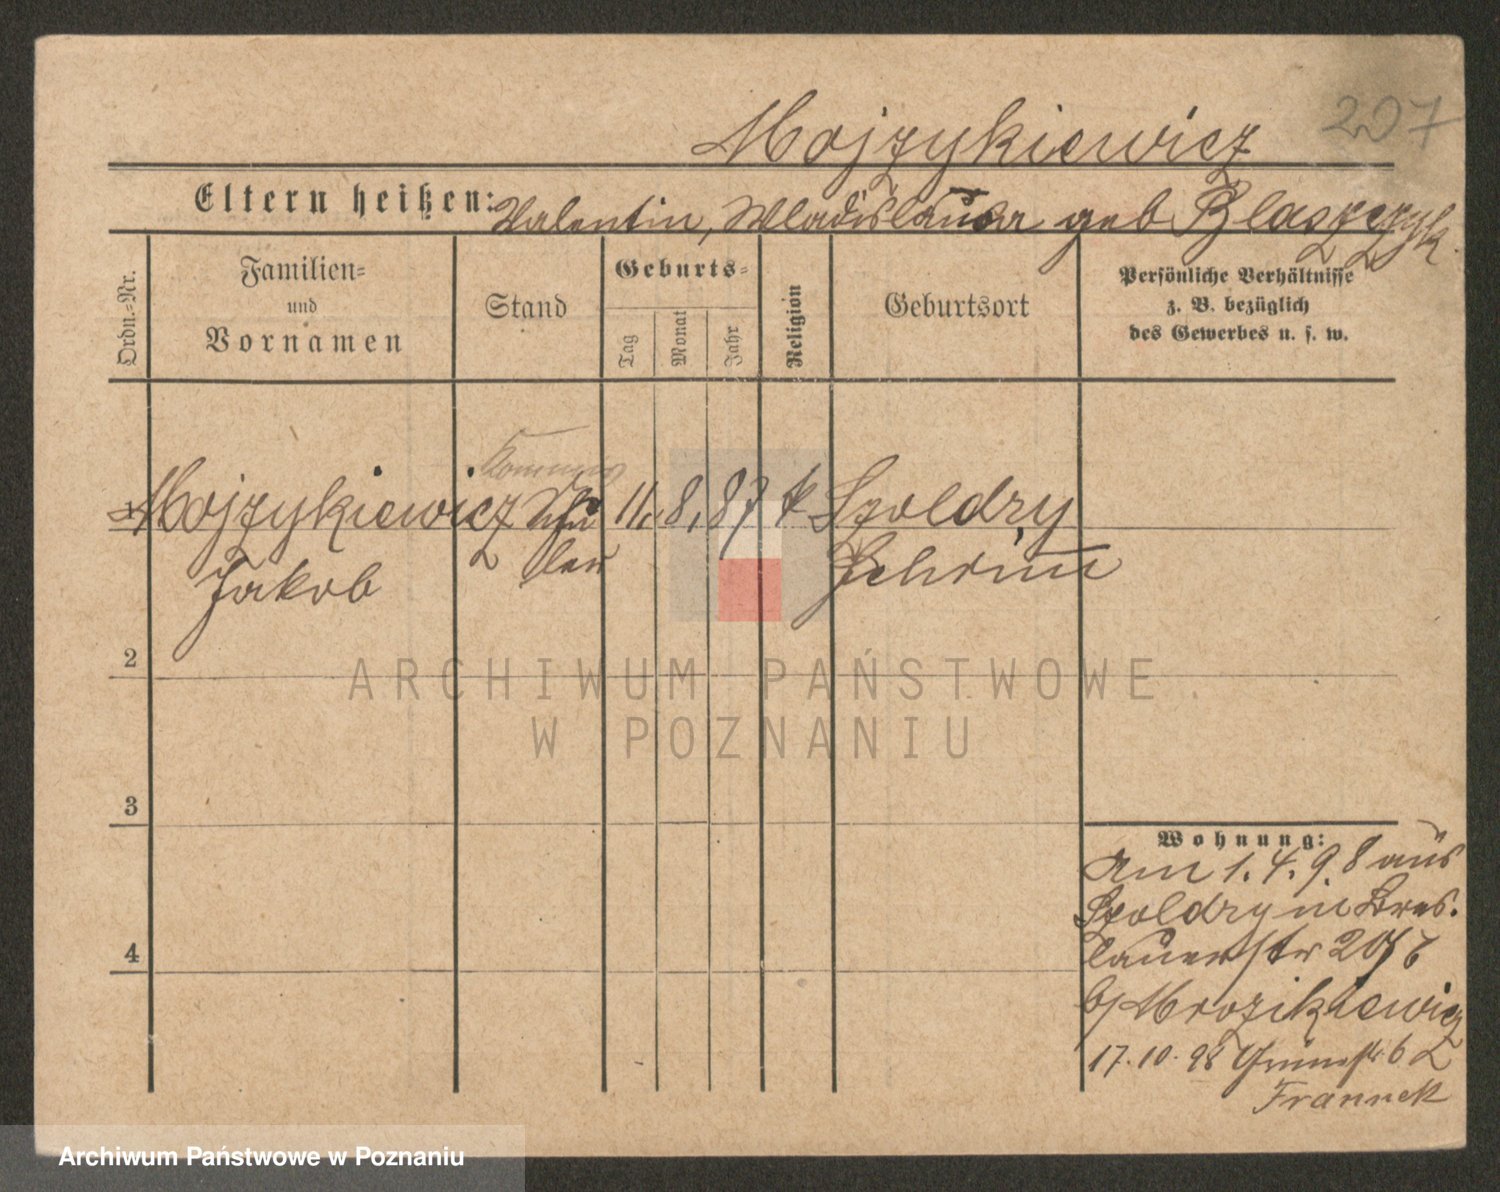 207
Mojzykiewicz
Eltern heißen: Valentin, Wladislausa geb Blaszczyk.
Ordn.-Nr.
Familien-
und
Vornamen
Stand
Geburts-
Tag
Monat
Jahr
Religion
Geburtsort
Persönliche Verhältnisse
z. B. bezüglich
des Gewerbes u. s. w.
1 Mojzykiewicz Schü 11. 8. 87 k Szoldry
Jakob ler Schrim
2
3
4
Wohnung:
Am 1.4.98 aus
Szoldry in Bres-
lauerstr 20/6
b/ Mrozikiewicz
17.10.98 Grünestr 6
Frannek
ARCHIWUM PAŃSTWOWE
W POZNANIU
Archiwum Państwowe w Poznaniu